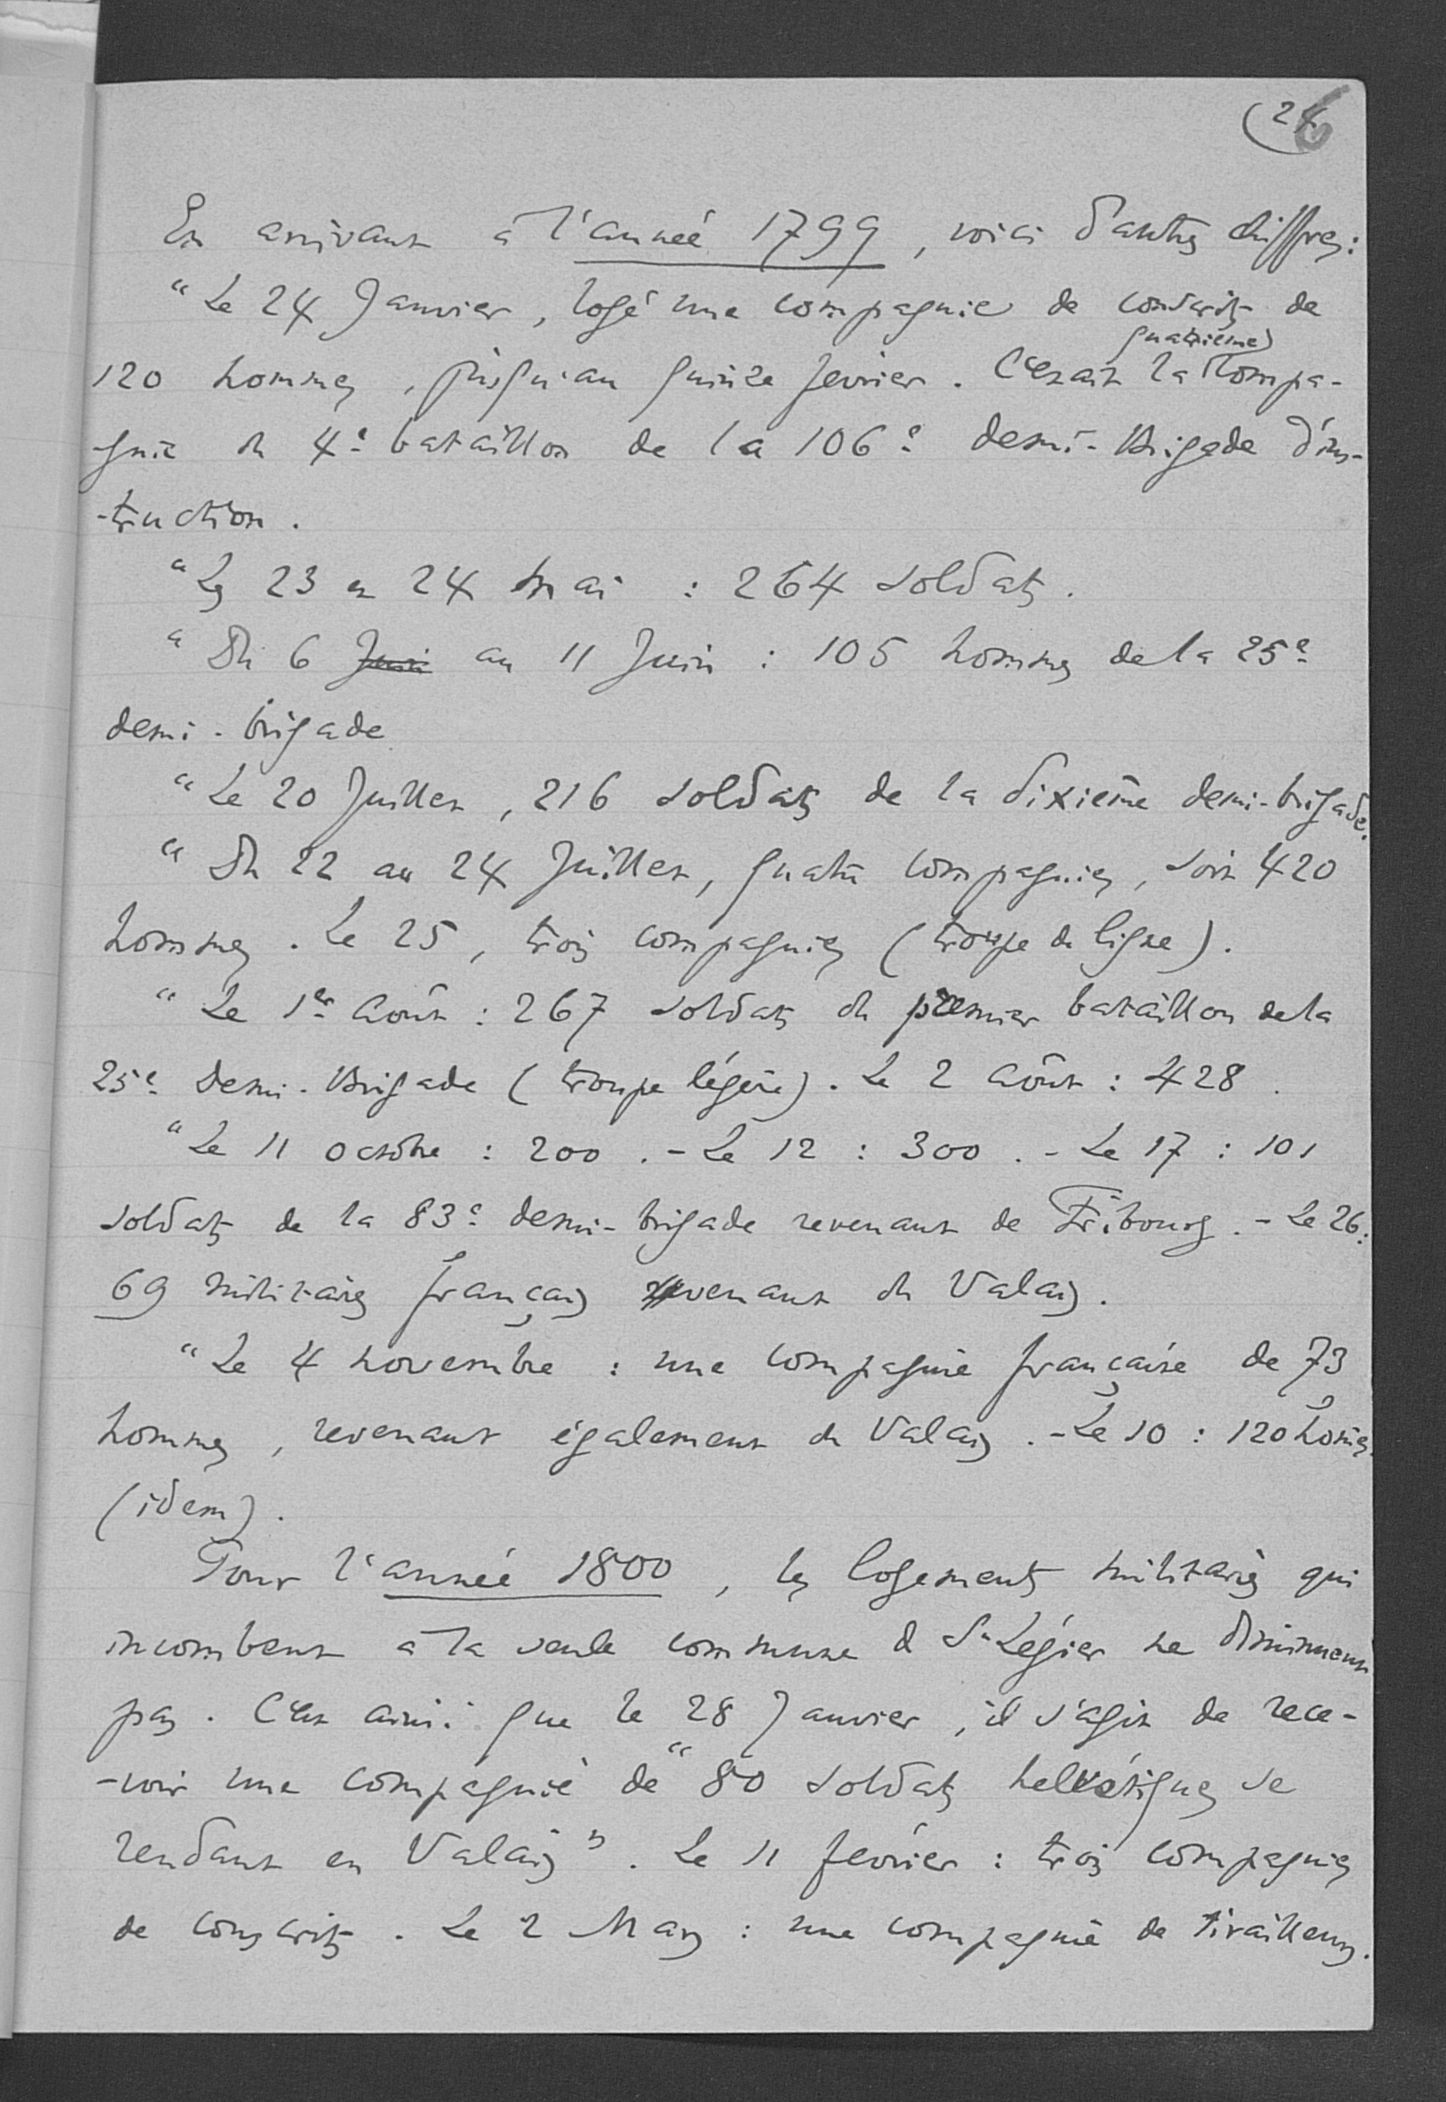 26
En arrivant à l'année 1799, voici d'autres chiffres :
"Le 24 Janvier, logé une compagnie de conscrits de
quatrième
120 hommes, jusqu'au quinze février. C'était la Compa-
-gnie du 4e bataillon de la 106e demi-Brigade d'ins-
-truction.
"Les 23 et 24 Mai : 264 soldats.
"Du 6 Juin au 11 Juin : 105 hommes de la 25e
demi-brigade
"Le 20 Juillet, 216 soldats de la dixième demi-brigade.
"Du 22 au 24 Juillet, quatre compagnies, soit 420
hommes. Le 25, trois compagnies (troupe de ligne).
"Le 1er Août : 267 soldats du premier bataillon de la
25e Demi-Brigade (troupe légère). Le 2 Août : 428.
"Le 11 octobre : 200. - Le 12 : 300. - Le 17 : 101
soldats de la 83e demi-brigade revenant de Fribourg. - Le 26 :
69 militaires français revenant du Valais.
"Le 4 novembre : une compagnie française de 73
hommes, revenant également du Valais. - Le 10 : 120 homes
(idem).
Pour l'année 1800, les logements militaires qui
incombent à la seule commune de St-Légier ne diminuent
pas. C'est ainsi que le 28 Janvier, il s'agit de rece-
-voir une compagnie de "80 soldats helvétiques se
rendant en Valais". Le 11 février : trois compagnies
de conscrits. Le 2 Mars : une compagnie de tirailleurs.